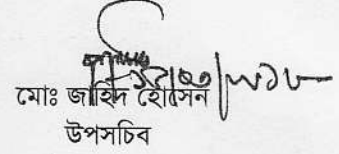 মোঃ জাহিদ হোসেন
উপসচিব